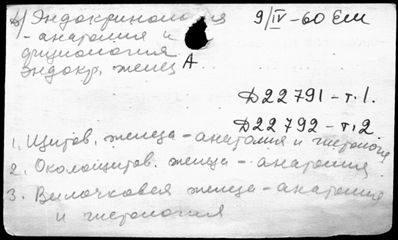 в) Эндокринология 9/IV-60 Еш
- анатомия и
физиология
эндокр. желез А
Д22791-т.1.
Д22792-т.2.
1. Щитов. железа - анатомия и гистология
2. Околощитов. железа - анатомия
3. Вилочковая железа - анатомия
и гистология